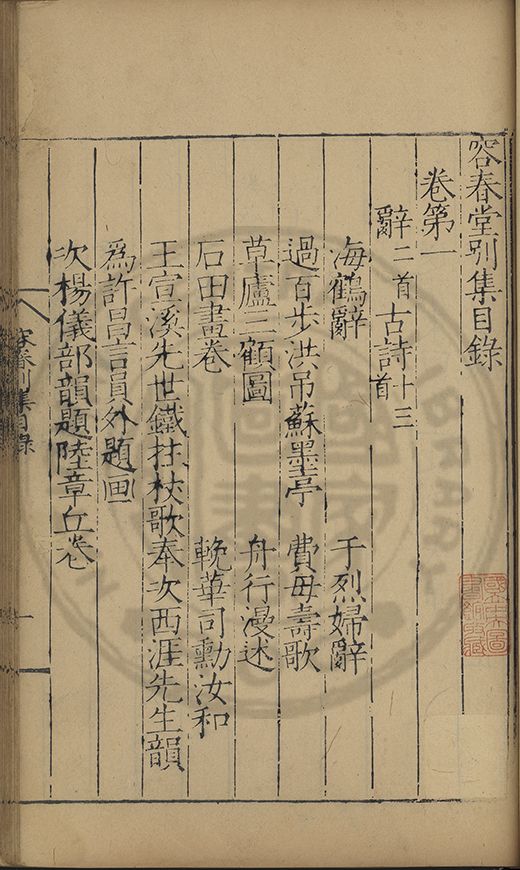 容春堂別集目錄
卷第一
辭二首 古詩十三首
海鶴辭 于烈婦辭
過百步洪吊蘇墨亭 費母壽歌
草廬三顧圖 舟行漫述
石田畫卷 輓華司勳汝和
王宣溪先世鐵拄杖歌奉次西涯先生韻
為許昌言員外題画
次楊儀部韻題陸章丘卷
容春別集目錄
一